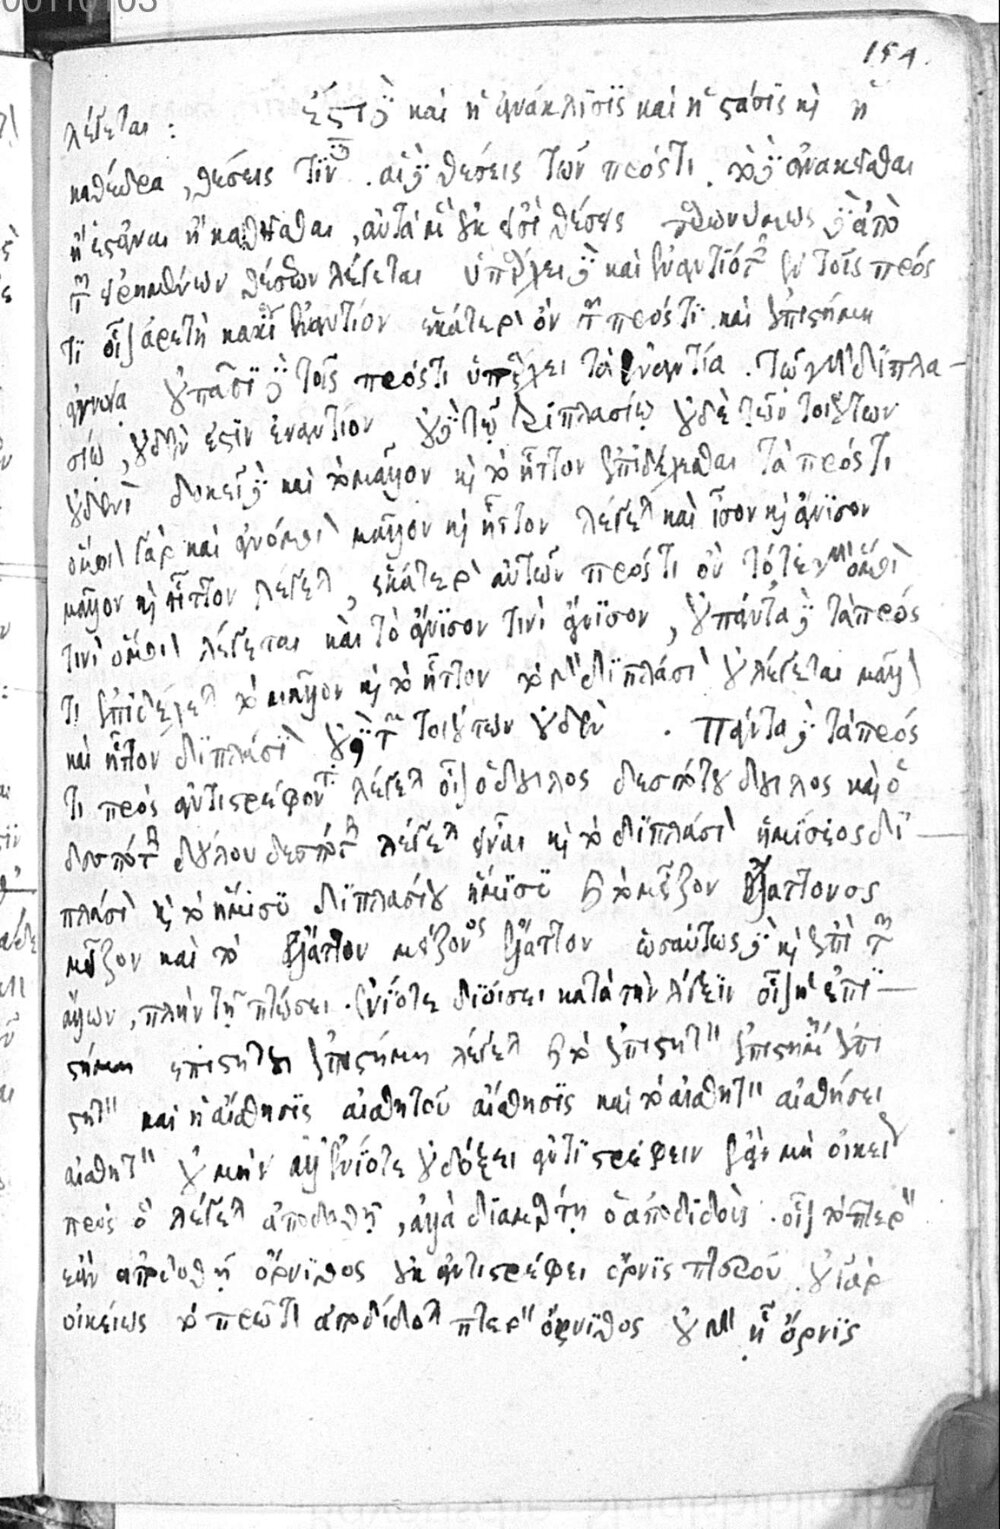 154.
λέγεται : ἔστι δὲ καὶ ἡ ἀνάκλισϊς καὶ ἡ στάσϊς κỳ ἡ
καθέδρα, θέσεις τϊνές. αἱ δὲ θέσεις τῶν πρός τι. τὸ δὲ ἀνακεῖσθαι
ἢ ἑστάναι ἢ καθῆσθαι, αὐτὰ μὲν οὐκ εἰσὶ θέσεις παρωνύμως δὲ ἀπὸ
τῶν εἰρημένων θέσεων λέγεται ὑπάρχει δὲ καὶ ἐναντιότης ἐν τοῖς πρός
τϊ οἷον ἀρετὴ κακίᾳ ἐναντίον ἑκάτερον ὂν τῶν πρός τϊ καὶ ἐπιστήμη
ἀγνοίᾳ οὐ πᾶσϊ δὲ τοῖς πρός τι ὑπάρχει τὰ ἐναντία. τῷ μὲν διπλα-
σίῳ, οὐδέν ἐστιν ἐναντίον οὐδὲ τῷ τριπλασίῳ οὐδὲ τῶν τοιούτων
οὐδενί δοκεῖ δὲ καὶ τὸ μᾶλλον καὶ τὸ ἧττον ἐπιδέχεσθαι τὰ πρός τι
ὅμοιον γὰρ καὶ ἀνόμοιον μᾶλλον καὶ ἧττον λέγεται καὶ ἴσον καὶ ἄνϊσον
μᾶλλον καὶ ἧττον λέγεται, ἑκάτερον αὐτῶν πρός τι ὂν τό τε γὰρ ὅμοιον
τινὶ ὅμοιον λέγεται καὶ τὸ ἄνϊσον τινὶ ἄνϊσον, οὐ πάντα δὲ τὰ πρός
τι ἐπιδέχεται τὸ μᾶλλον καὶ τὸ ἧττον τὸ γὰρ διπλάσιον οὐ λέγεται μᾶλλον
καὶ ἧττον διπλάσιον οὐδὲ τῶν τοιούτων οὐδέν . πάντα δὲ τὰ πρός
τι πρὸς ἀντιστρέφοντα λέγεται οἷον ὁ δοῦλος δεσπότου δοῦλος καὶ ὁ
δεσπότης δούλου δεσπότης λέγεται εἶναι καὶ τὸ διπλάσιον ἡμίσεος δϊ-
πλάσιον καὶ τὸ ἥμισυ διπλασίου ἥμισυ καὶ τὸ μεῖζον ἐλάττονος
μεῖζον καὶ τὸ ἔλαττον μείζονος ἔλαττον ὡσαύτως δὲ καὶ ἐπὶ τῶν
ἄλλων, πλὴν τῇ πτώσει ἐνίοτε διοίσει κατὰ τὴν λέξϊν οἷον ἡ ἐπϊ-
στήμη ἐπιστητοῦ ἐπιστήμη λέγεται καὶ τὸ ἐπιστητὸν ἐπιστήμῃ ἐπι
στητὸν καὶ ἡ αἴσθησϊς αἰσθητοῦ αἴσθησϊς καὶ τὸ αἰσθητὸν αἰσθήσει
αἰσθητὸν οὐ μὴν ἀλλ' ἐνίοτε οὐ δόξει ἀντιστρέφειν ἐὰν μὴ οἰκείως
πρὸς ὃ λέγεται ἀποδοθῇ, ἀλλὰ διαμάρτῃ ὁ ἀποδιδοὺς. οἷον τὸ πτερὸν
ἐὰν ἀποδοθῇ ὄρνιθος οὐκ ἀντιστρέφει ὄρνϊς πτεροῦ οὐ γὰρ
οἰκείως τὸ πρῶτον ἀποδίδοται πτερὸν ὄρνιθος οὐ γὰρ ᾗ ὄρνϊς